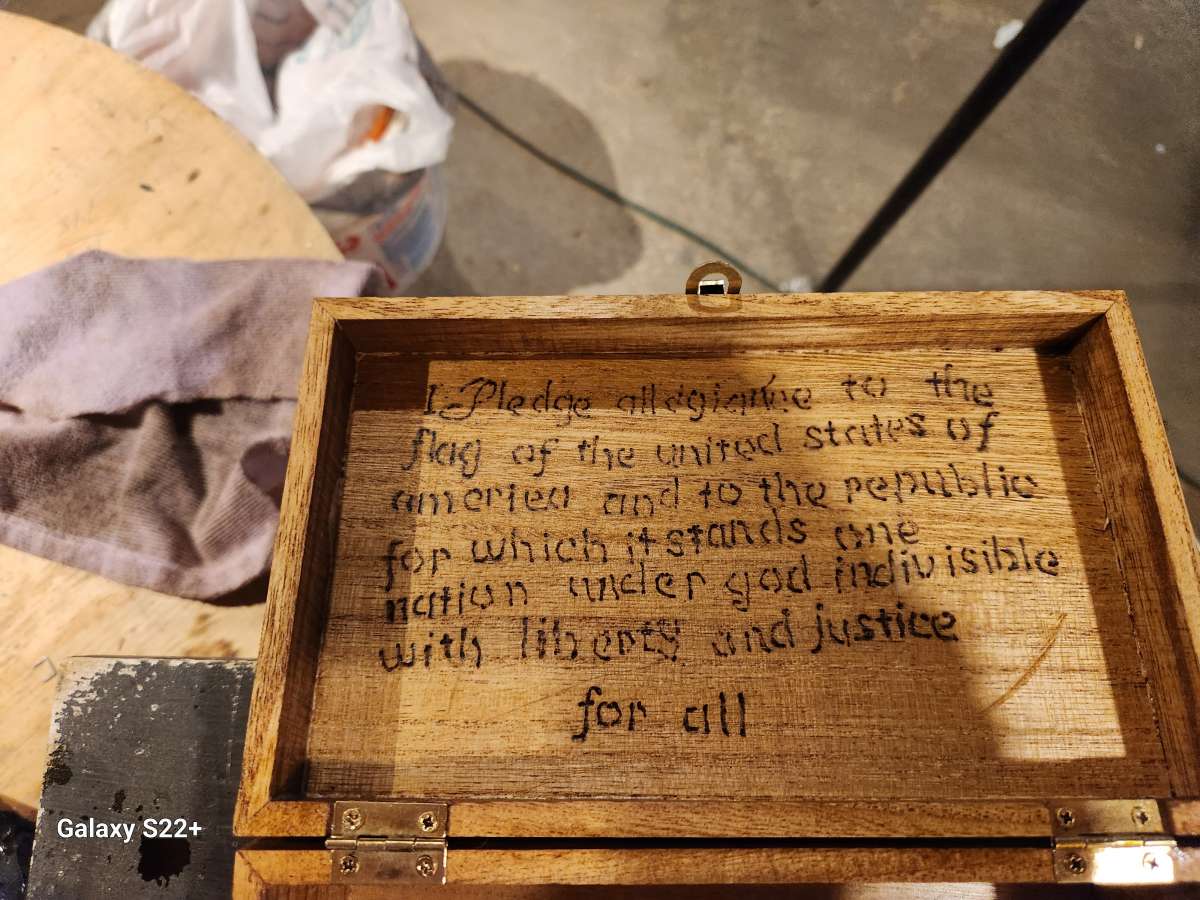 I Pledge allegiance to the
flag of the united states of
america and to the republic
for which it stands one
nation under god indivisible
with liberty and justice
for all
Galaxy S22+